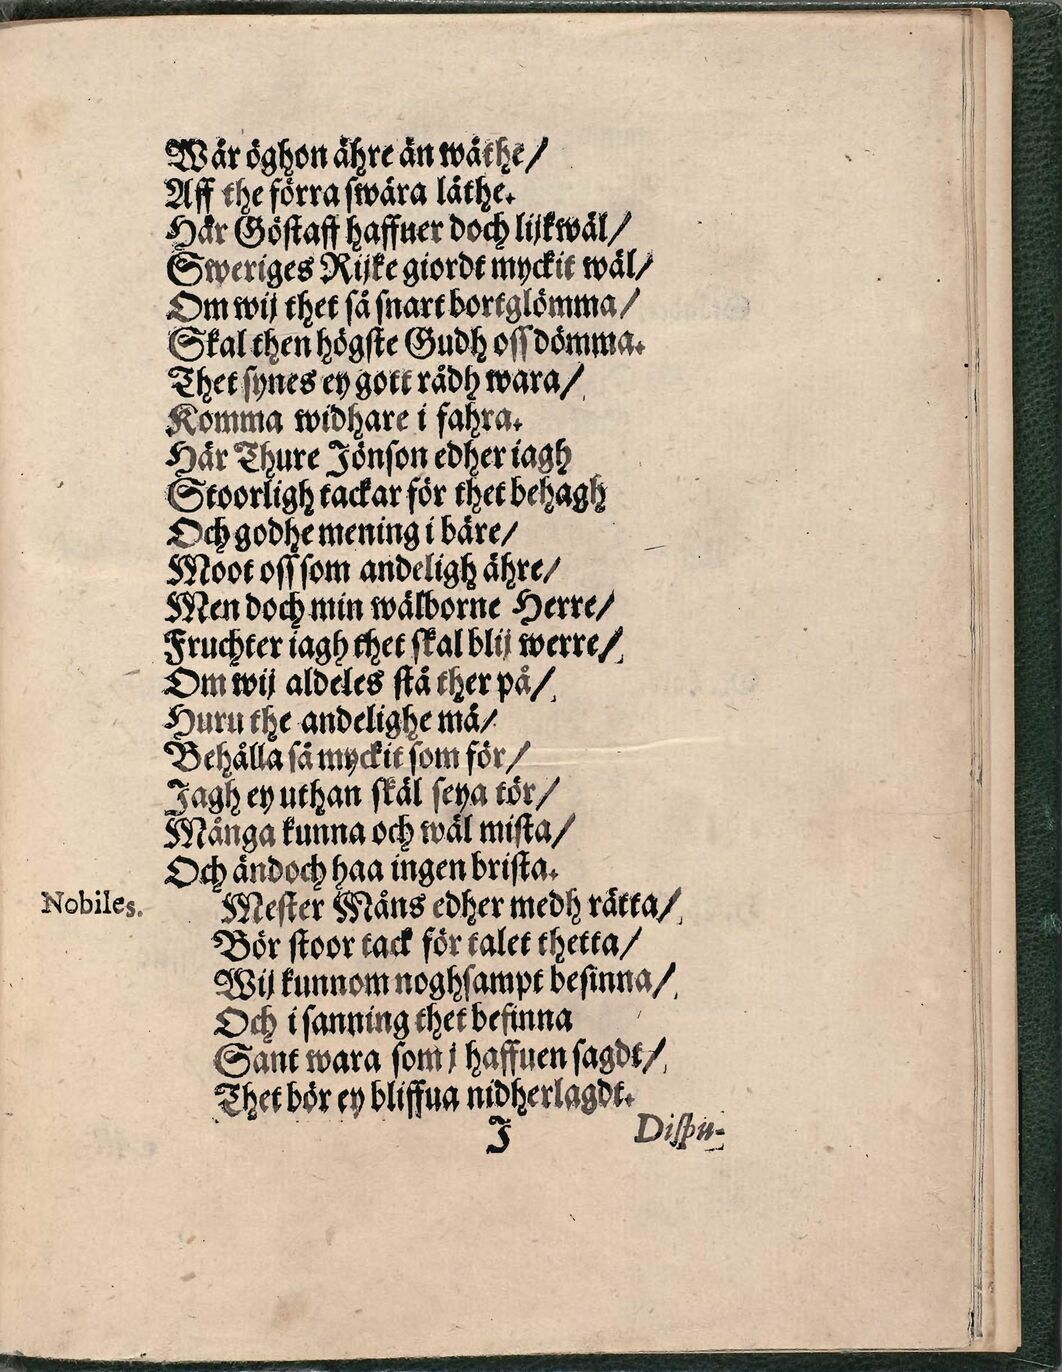 Wår öghon åhre än wåthe/
Aff the förra swåra låthe.
Hår Göstaff haffuer doch lijkwäl/
Sweriges Rijke giordt myckit wäl/
Om wij thet så snart bortglömma/
Skal then högste Gudh oss dömma.
Thet synes ey gott rådh wara/
Komma widhare i fahra.
Hår Thure Jönson edher iagh
Stoorligh tackar för thet behagh
Och godhe mening i båre/
Moot oss som andeligh åhre/
Men doch min wålborne Herre/
Fruchter iagh thet skal blij werre/
Om wij aldeles stå ther på/
Huru the andelighe må/
Behålla så myckit som för/
Jagh ey uthan skål seya tör/
Många kunna och wäl mista/
Och ändoch haa ingen brista.
Nobiles. Mester Måns edher medh rätta/
Bör stoor tack för talet thetta/
Wij kunnom noghsampt besinna/
Och i sanning thet befinna
Sant wara som j haffuen sagdt/
Thet bör ey bliffua nidherlagdt.
J Dispu-